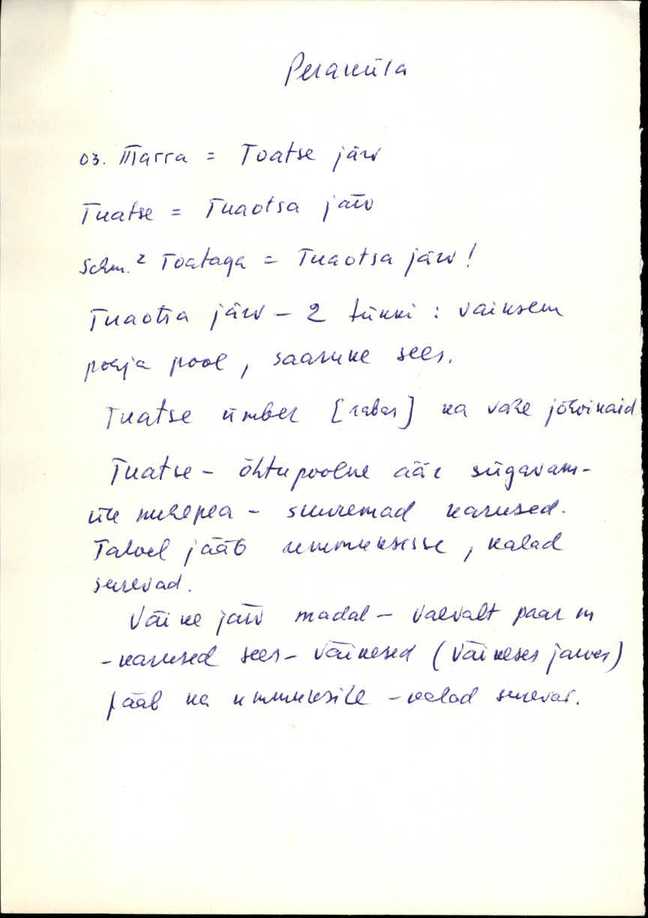 Peraküla
03. Marra = Toatse järv
Tuatse = Tuaotsa järv
Schm.² Toataga = Tuaotsa järv!
Tuaotsa järv – 2 tükki : väiksem
põhja pool, saaruke sees.
Tuatse ümber [rabas] ka väke järvikaid
Tuatse – õhtupoolne äär sügavam-
üle mehepea – suuremad karused.
Talvel jääb ummuksisse, kalad
surevad.
Väike järv madal – vaevalt paar m
– karused sees – väikesed (väikeses järves)
jääb ka ummuksile – kalad surevad.